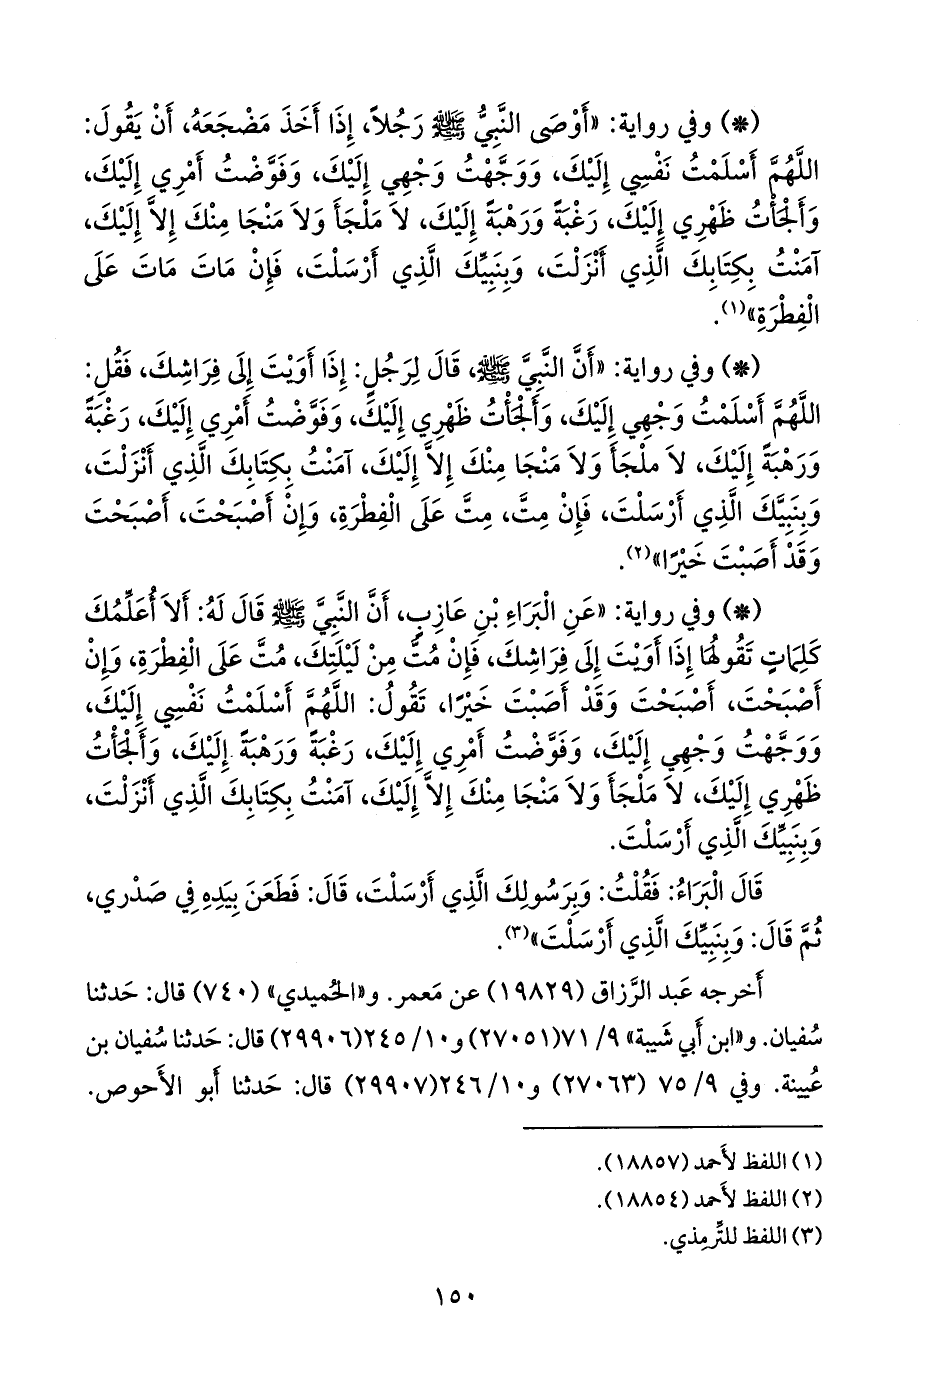 (*) وفي رواية: «أَوْصَى النَّبِيُّ ﷺ رَجُلاً، إِذَا أَخَذَ مَضْجَعَهُ، أَنْ يَقُولَ:
اللَّهُمَّ أَسْلَمْتُ نَفْسِي إِلَيْكَ، وَوَجَّهْتُ وَجْهِي إِلَيْكَ، وَفَوَّضْتُ أَمْرِي إِلَيْكَ،
وَأَلْجَأْتُ ظَهْرِي إِلَيْكَ، رَغْبَةً وَرَهْبَةً إِلَيْكَ، لاَ مَلْجَأَ وَلاَ مَنْجَا مِنْكَ إِلاَّ إِلَيْكَ،
آمَنْتُ بِكِتَابِكَ الَّذِي أَنْزَلْتَ، وَبِنَبِيِّكَ الَّذِي أَرْسَلْتَ، فَإِنْ مَاتَ مَاتَ عَلَى
الْفِطْرَةِ»(١).
(*) وفي رواية: «أَنَّ النَّبِيَّ ﷺ، قَالَ لِرَجُلٍ: إِذَا أَوَيْتَ إِلَى فِرَاشِكَ، فَقُلِ:
اللَّهُمَّ أَسْلَمْتُ وَجْهِي إِلَيْكَ، وَأَلْجَأْتُ ظَهْرِي إِلَيْكَ، وَفَوَّضْتُ أَمْرِي إِلَيْكَ، رَغْبَةً
وَرَهْبَةً إِلَيْكَ، لاَ مَلْجَأَ وَلاَ مَنْجَا مِنْكَ إِلاَّ إِلَيْكَ، آمَنْتُ بِكِتَابِكَ الَّذِي أَنْزَلْتَ،
وَبِنَبِيِّكَ الَّذِي أَرْسَلْتَ، فَإِنْ مِتَّ، مِتَّ عَلَى الْفِطْرَةِ، وَإِنْ أَصْبَحْتَ، أَصْبَحْتَ
وَقَدْ أَصَبْتَ خَيْرًا»(٢).
(*) وفي رواية: «عَنِ الْبَرَاءِ بْنِ عَازِبٍ، أَنَّ النَّبِيَّ ﷺ قَالَ لَهُ: أَلاَ أُعَلِّمُكَ
كَلِمَاتٍ تَقُولُهَا إِذَا أَوَيْتَ إِلَى فِرَاشِكَ، فَإِنْ مُتَّ مِنْ لَيْلَتِكَ، مُتَّ عَلَى الْفِطْرَةِ، وَإِنْ
أَصْبَحْتَ، أَصْبَحْتَ وَقَدْ أَصَبْتَ خَيْرًا، تَقُولُ: اللَّهُمَّ أَسْلَمْتُ نَفْسِي إِلَيْكَ،
وَوَجَّهْتُ وَجْهِي إِلَيْكَ، وَفَوَّضْتُ أَمْرِي إِلَيْكَ، رَغْبَةً وَرَهْبَةً إِلَيْكَ، وَأَلْجَأْتُ
ظَهْرِي إِلَيْكَ، لاَ مَلْجَأَ وَلاَ مَنْجَا مِنْكَ إِلاَّ إِلَيْكَ، آمَنْتُ بِكِتَابِكَ الَّذِي أَنْزَلْتَ،
وَبِنَبِيِّكَ الَّذِي أَرْسَلْتَ.
قَالَ الْبَرَاءُ: فَقُلْتُ: وَبِرَسُولِكَ الَّذِي أَرْسَلْتَ، قَالَ: فَطَعَنَ بِيَدِهِ فِي صَدْرِي،
ثُمَّ قَالَ: وَبِنَبِيِّكَ الَّذِي أَرْسَلْتَ»(٣).
أَخرجه عَبد الرَّزاق (١٩٨٢٩) عن مَعمر. و«الحُميدي» (٧٤٠) قال: حَدثنا
سُفيان. و«ابن أَبي شَيبة» ٩/ ٧١(٢٧٠٥١) و١٠/ ٢٤٥(٢٩٩٠٦) قال: حَدثنا سُفيان بن
عُيينة. وفي ٩/ ٧٥ (٢٧٠٦٣) و١٠/ ٢٤٦(٢٩٩٠٧) قال: حَدثنا أَبو الأَحوص.
(١) اللفظ لأَحمد (١٨٨٥٧).
(٢) اللفظ لأَحمد (١٨٨٥٤).
(٣) اللفظ للتِّرمِذي.
١٥٠